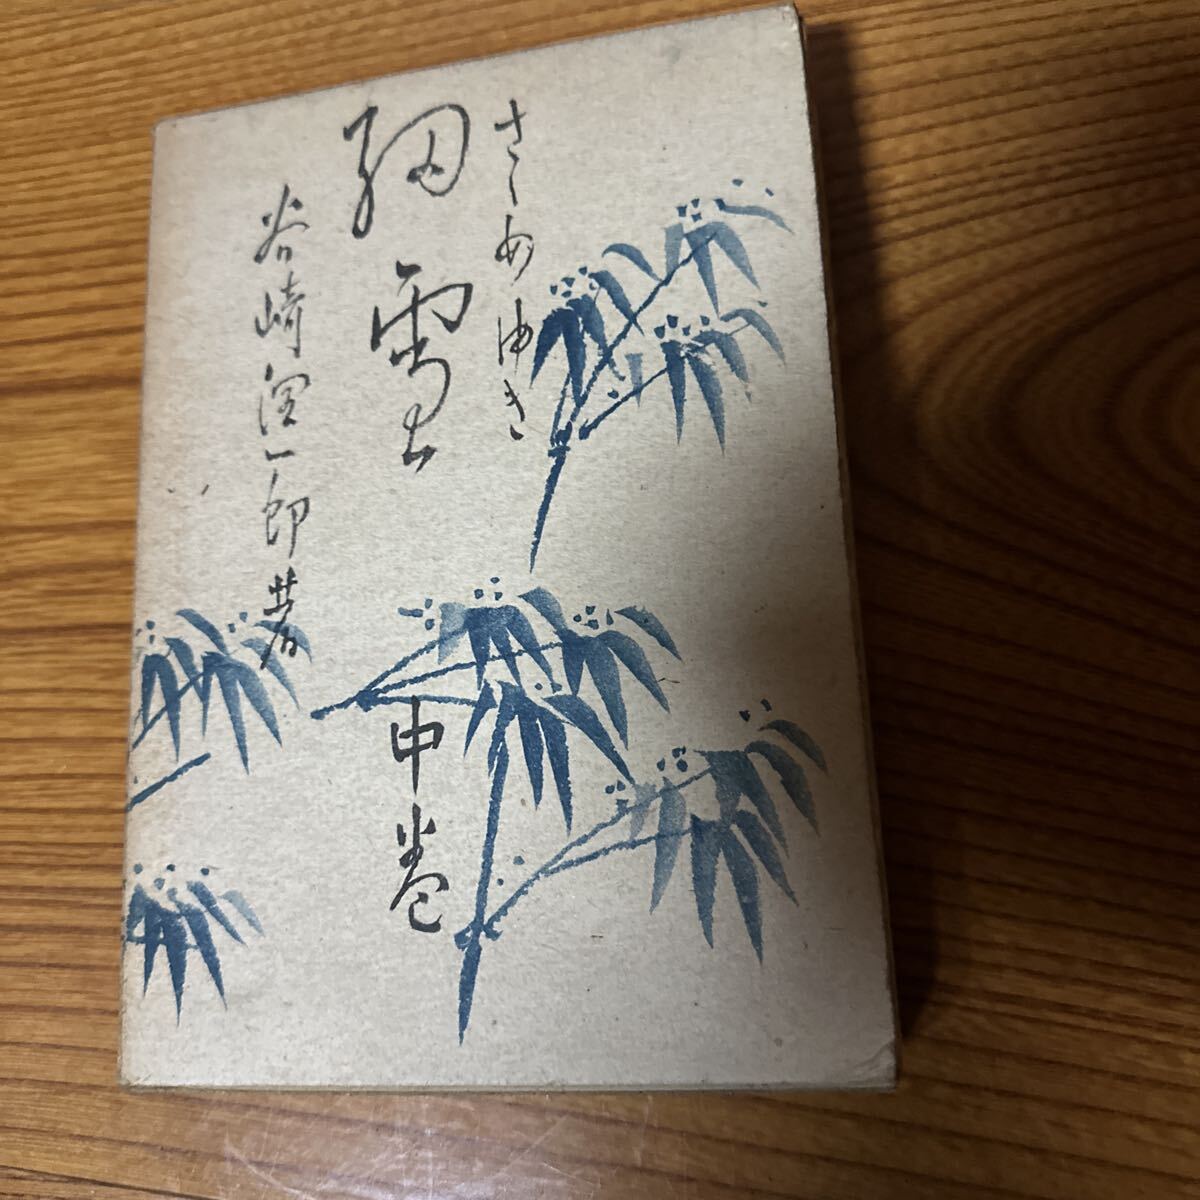 さゝめゆき
細雪
谷崎潤一郎著
中巻